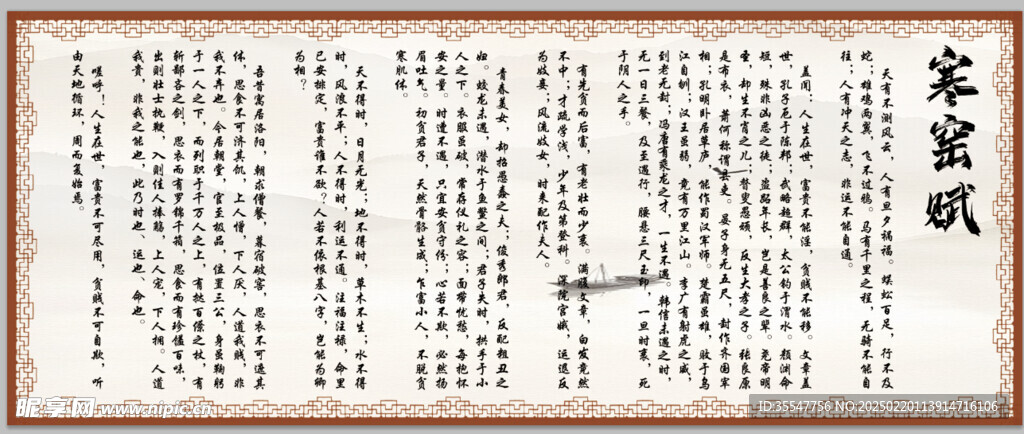 寒窑赋
天有不测风云，人有旦夕祸福。蜈蚣百足，行不及
蛇；雄鸡两翼，飞不过鸦。马有千里之程，无骑不能自
往；人有冲天之志，非运不能自通。
盖闻：人生在世，富贵不能淫，贫贱不能移。文章盖
世，孔子厄于陈邦；武略超群，太公钓于渭水。颜渊命
短，殊非凶恶之徒；盗跖年长，岂是善良之辈。尧帝明
圣，却生不肖之儿；瞽叟愚顽，反生大孝之子。张良原
是布衣，萧何称谓县吏。晏子身无五尺，封作齐国宰
相；孔明卧居草庐，能作蜀汉军师。楚霸虽雄，败于乌
江自刎；汉王虽弱，竟有万里江山。李广有射虎之威，
到老无封；冯唐有乘龙之才，一生不遇。韩信未遇之时，
无一日三餐，及至遇行，腰悬三尺玉印，一旦时衰，死
于阴人之手。
有先贫而后富，有老壮而少衰。满腹文章，白发竟然
不中；才疏学浅，少年及第登科。深院宫娥，运退反
为妓妾；风流妓女，时来配作夫人。
青春美女，却招愚蠢之夫；俊秀郎君，反配粗丑之
妇。蛟龙未遇，潜水于鱼鳖之间；君子失时，拱手于小
人之下。衣服虽破，常存仪礼之容；面带忧愁，每抱怀
安之量。时遭不遇，只宜安贫守份；心若不欺，必然扬
眉吐气。初贫君子，天然骨骼生成；乍富小人，不脱贫
寒肌体。
天不得时，日月无光；地不得时，草木不生；水不得
时，风浪不平；人不得时，利运不通。注福注禄，命里
已安排定，富贵谁不欲？人若不依根基八字，岂能为卿
为相？
吾昔寓居洛阳，朝求僧餐，暮宿破窖，思衣不可遮其
体，思食不可济其饥，上人憎，下人厌，人道我贱，非
我不弃也。今居朝堂，官至极品，位置三公，身虽鞠躬
于一人之下，而列职于千万人之上，有挞百僚之杖，有
斩鄙吝之剑，思衣而有罗锦千箱，思食而有珍馐百味，
出则壮士执鞭，入则佳人捧觞，上人宠，下人拥。人道
我贵，非我之能也，此乃时也、运也、命也。
嗟呼！人生在世，富贵不可尽用，贫贱不可自欺，听
由天地循环，周而复始焉。
昵享网 www.nipic.cn
ID:35547756 NO:20250220113914716106